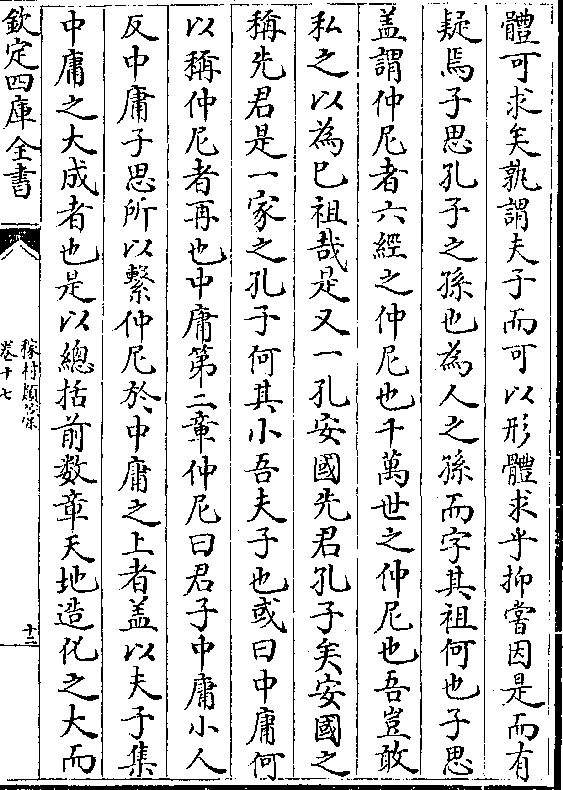 體可求矣孰謂夫子而可以形體求乎抑嘗因是而有
疑焉子思孔子之孫也為人之孫而字其祖何也子思
盖謂仲尼者六經之仲尼也千萬世之仲尼也吾豈敢
私之以為已祖哉是又一孔安國先君孔子矣安國之
稱先君是一家之孔子何其小吾夫子也或曰中庸何
以稱仲尼者再也中庸第二章仲尼曰君子中庸小人
反中庸子思所以繫仲尼於中庸之上者盖以夫子集
中庸之大成者也是以總括前数章天地造化之大而
欽定四庫全書
稼村類藁
卷十七
十二